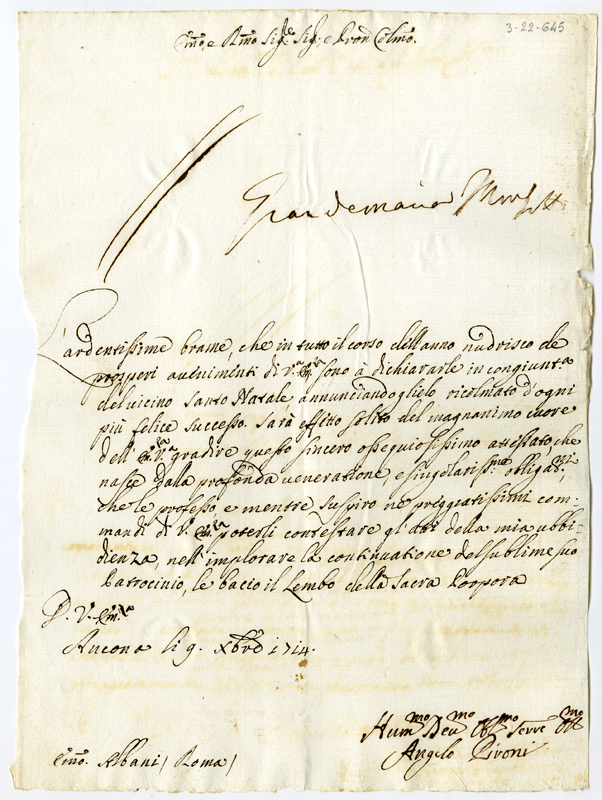 3-22-645
Emo, e Rmo Sigre Sigr, e Pron Colmo.
L'ardentissime brame, che in tutto il corso dell'anno nudrisco de
prosperi auenimenti di V.a Em.za sono à dichiararle in congiunt.a
del uicino Santo Natale annunciandoglielo ricolmato d'ogni
più felice successo. Sarà effetto solito del magnanimo cuore
dell' Em.za V.a gradire questo sincero ossequiosissimo attestato che
nasce dalla profonda ueneratione, e singolariss.me obligat.ni
che le professo, e mentre suspiro ne preggiatissimi com-
mandi di V. Em.za poterli contestare gl'atti della mia ubbi-
dienza, nell'implorare la continuatione del sublime suo
Patrocinio, le bacio il Lembo della Sacra Porpora
D. V. Em.za
Ancona li 9. Xbre 1714.
Hum.mo Deu.mo Obl.mo Serre
Angelo Pironi
Emo. Albani / Roma /